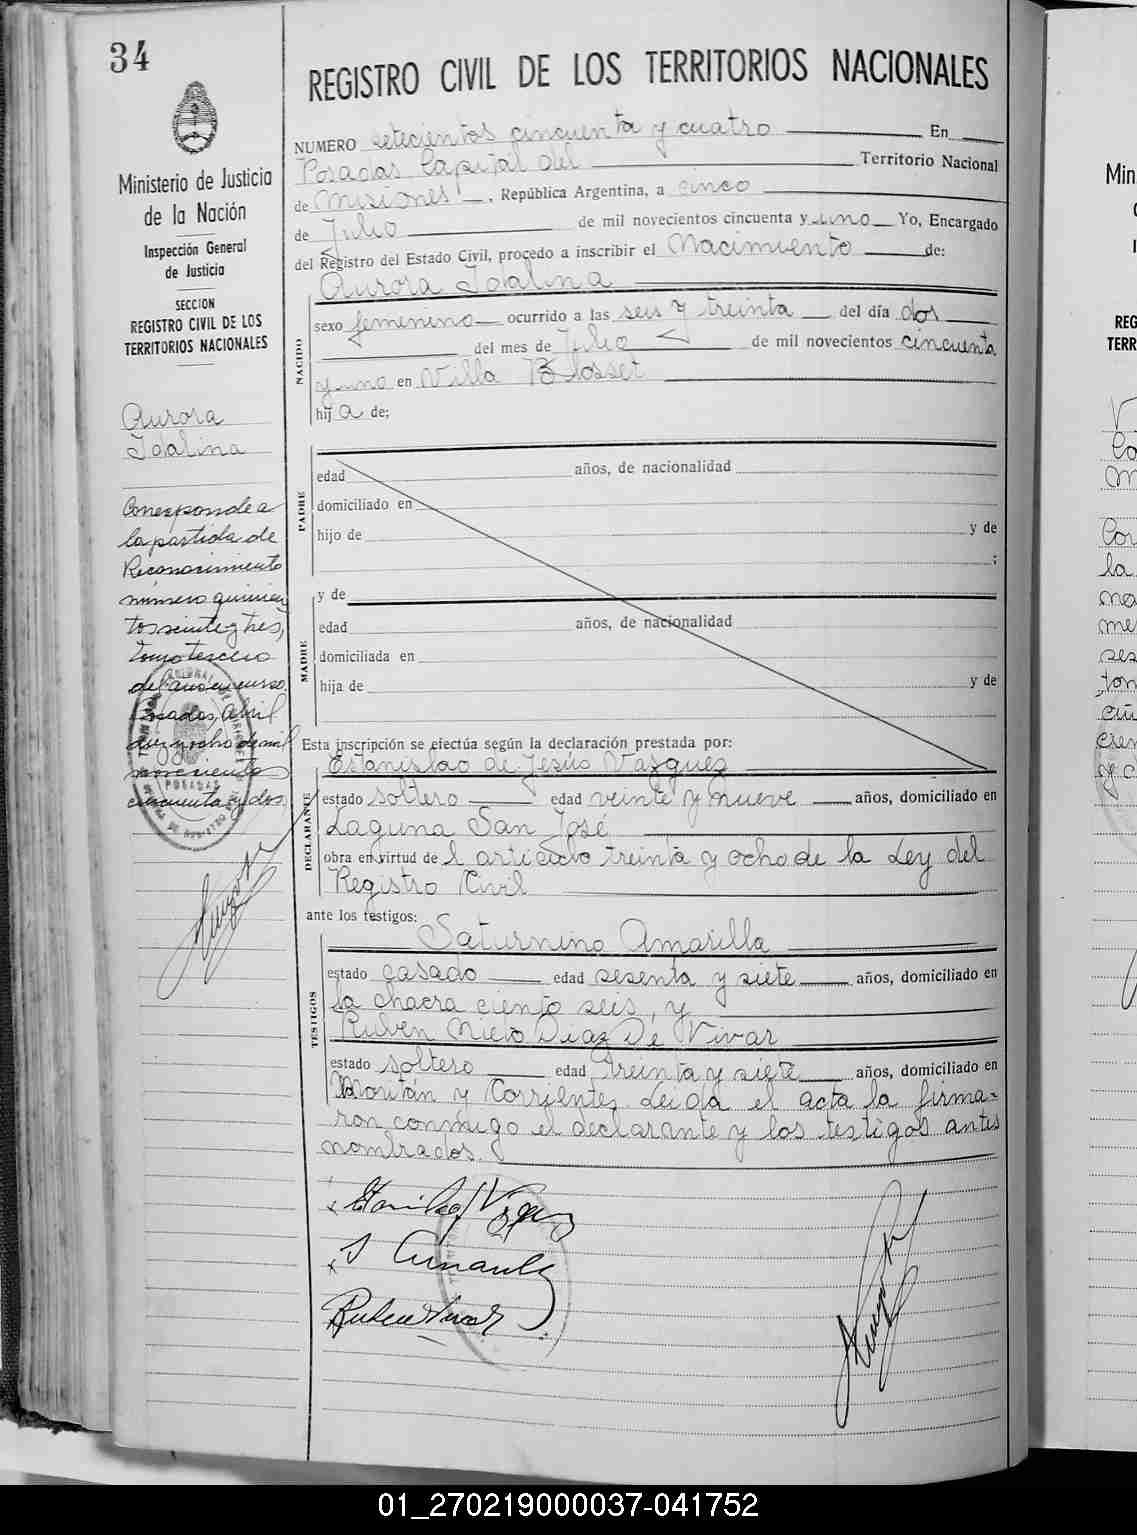 34
REGISTRO CIVIL DE LOS TERRITORIOS NACIONALES
Ministerio de Justicia
de la Nación
Inspección General
de Justicia
SECCION
REGISTRO CIVIL DE LOS
TERRITORIOS NACIONALES
Aurora
Idalina
Corresponde a
la partida de
Reconocimiento
número quinien
tos veinte y tres,
tomo tercero
del año en curso.
Posadas, Abril
diez y ocho de mil
novecientos
cincuenta y dos.
NUMERO setecientos cincuenta y cuatro En
Posadas Capital del Territorio Nacional
de Misiones, República Argentina, a cinco
de Julio de mil novecientos cincuenta y uno Yo, Encargado
del Registro del Estado Civil, procedo a inscribir el Nacimiento de:
Aurora Idalina
NACIDO
sexo femenino ocurrido a las seis y treinta del día dos
del mes de Julio de mil novecientos cincuenta
y uno en Villa Blosset
hija de;
PADRE
edad años, de nacionalidad
domiciliado en
hijo de y de
;
MADRE
y de
edad años, de nacionalidad
domiciliada en
hija de y de
Esta inscripción se efectúa según la declaración prestada por:
DECLARANTE
Estanislao de Jesús Vazquez
estado soltero edad veinte y nueve años, domiciliado en
Laguna San José
obra en virtud de l articulo treinta y ocho de la Ley del
Registro Civil
ante los testigos:
TESTIGOS
Saturnino Amarilla
estado casado edad sesenta y siete años, domiciliado en
la chacra ciento seis, y
Ruben Nieto Diaz De Vivar
estado soltero edad treinta y siete años, domiciliado en
y Corrientes. Leida el acta la firma-
ron conmigo el declarante y los testigos antes
nombrados.
Ruben Vivar
POSADAS
Min
REG
TERR
01_270219000037-041752